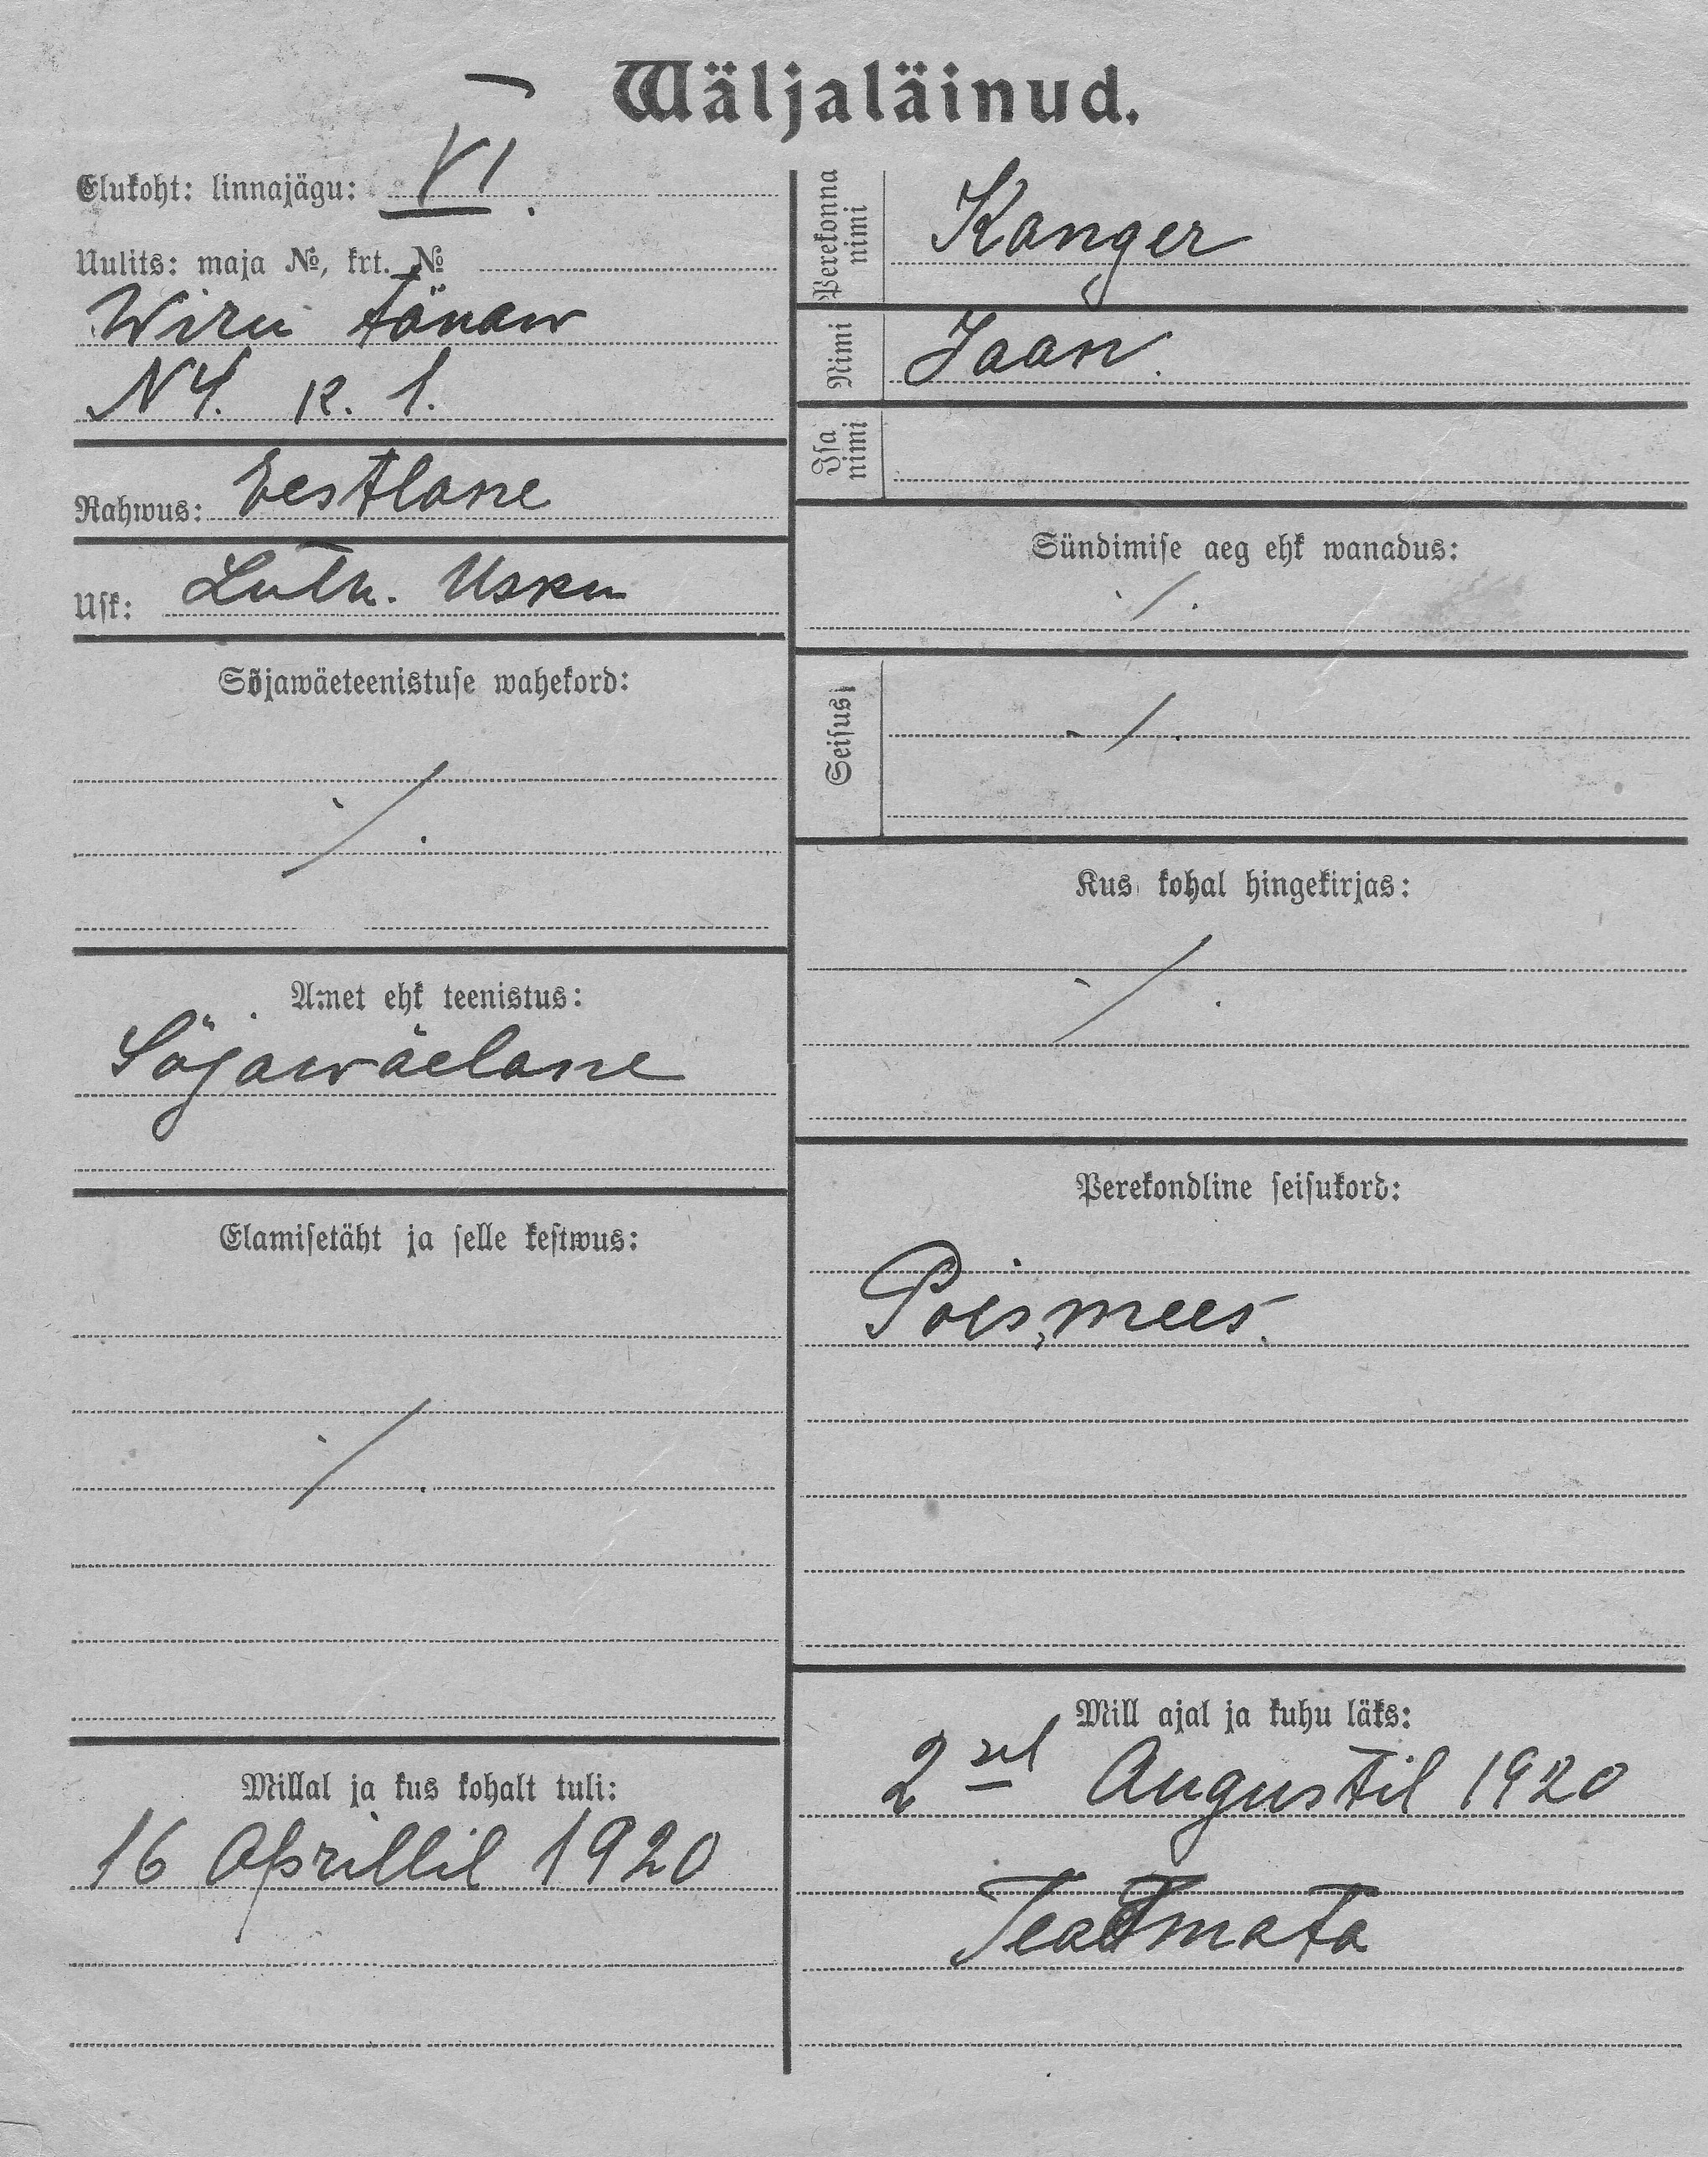 Wäljaläinud.
Elukoht: linnajägu: VI.
Uulits: maja №, krt. №
Wiru tänaw
N 4. k. 1.
Rahwus: Eestlane
Usk: Luth. Usku
Sõjawäeteenistuse wahekord:
·/.
Amet ehk teenistus:
Sõjawäelane
Elamisetäht ja selle kestwus:
·/.
Millal ja kus kohalt tuli:
16 Aprillil 1920
Perekonna nimi Kanger
Nimi Jaan.
Isa nimi
Sündimise aeg ehk wanadus:
·/.
Seisus
·/.
Kus kohal hingekirjas:
·/.
Perekondline seisukord:
Poismees.
Mill ajal ja kuhu läks:
2 sel Augustil 1920
Teadmata